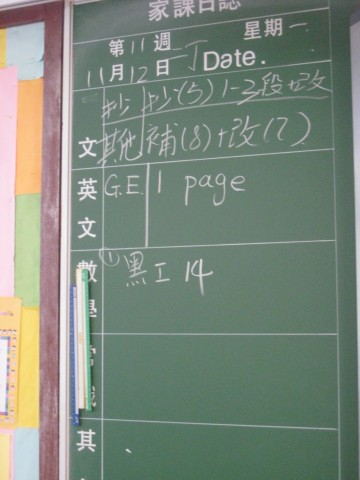 家課日誌
第11週 星期一
11月12日 一丁 Date.
抄 抄(5) 1-3段+改
文 其他 補(8)+改(7)
英文 G.E. 1 page
數學 ① 黑工 14
常識
其